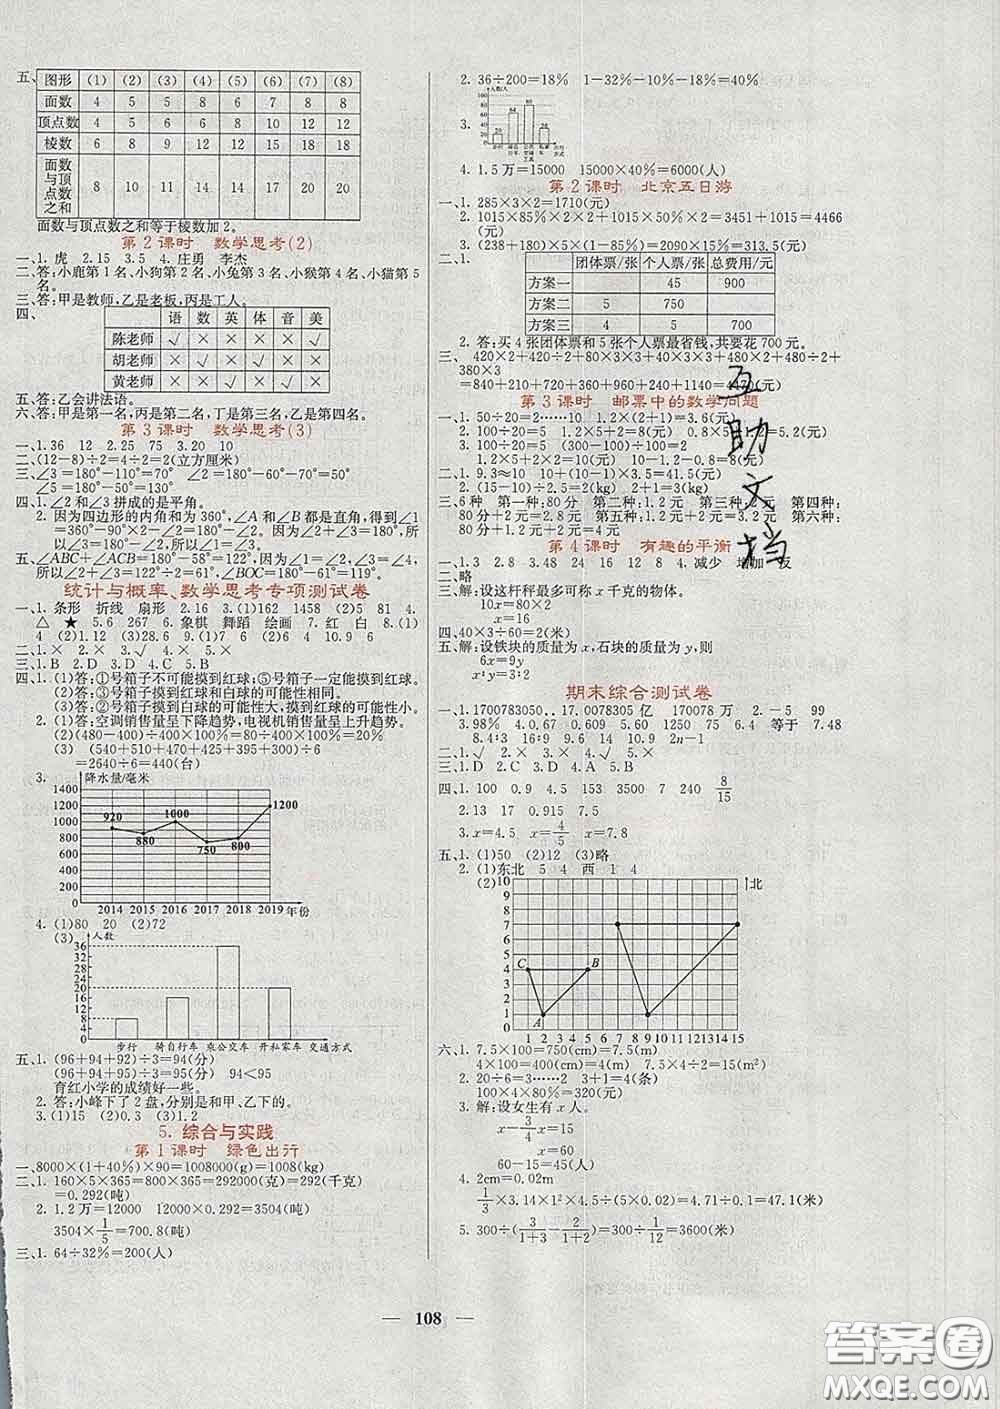 五、图形 (1) (2) (3) (4) (5) (6) (7) (8)
面数 4 5 5 8 6 7 8 8
顶点数 4 5 6 6 8 10 12 12
棱数 6 8 9 12 12 15 18 18
面数与顶点数之和 8 10 11 14 14 17 20 20
面数与顶点数之和等于棱数加2。
第2课时 数学思考(2)
一、1. 虎 2. 15 3. 5 4. 庄勇 李杰
二、答:小鹿第1名、小狗第2名、小兔第3名、小猴第4名、小猫第5名。
三、答:甲是教师,乙是老板,丙是工人。
四、
语 数 英 体 音 美
陈老师 √ × × × × √
胡老师 × √ × √ × ×
黄老师 × × √ × √ ×
五、答:乙会讲法语。
六、答:甲是第一名,丙是第二名,丁是第三名,乙是第四名。
第3课时 数学思考(3)
一、1. 36 12 2. 25 75 3. 20 10
二、(12−8)÷2=4÷2=2(立方厘米)
三、∠3=180°−110°=70° ∠2=180°−60°−70°=50°
∠1=180°−50°=130°
四、1. ∠2和∠3拼成的是平角。
2. 因为四边形的内角和为360°,∠A和∠B都是直角,得到∠1=360°−90°×2−∠2=180°−∠2,而∠3=180°−∠2,所以∠1=∠3。
五、∠ABC+∠ACB=180°−58°=122°,因为∠1=∠2,∠3=∠4,所以∠2+∠4=122°÷2=61°,∠BOC=180°−61°=119°。
统计与概率、数学思考专项测试卷
一、1. 条形 折线 扇形 2. 16 3. (1)162 1458 (2)5 81 4.
△ ★ 5. 6 267 6. 象棋 舞蹈 绘画 7. 红 白 8. (1)
4 (2)1.12 (3)28.6 9. (1)7 (2)6 4 10. 9 6
二、1. × 2. × 3. √ 4. × 5. ×
三、1. B 2. D 3. D 4. B 5. D
四、1. (1)答:①号箱子不可能摸到红球;⑤号箱子一定能摸到红球。
(2)答:③号箱子摸到红球和白球的可能性相同。
(3)答:②号箱子摸到红球的可能性大,摸到白球的可能性小。
2. (1)答:空调销售量呈下降趋势,电视机销售量呈上升趋势。
(2)(480−400)÷400×100%=80÷400×100%=20%
(3)(540+510+470+425+395+300)÷6
=2640÷6=440(台)
3. 降水量/毫米
1400
1200 1200
1000 920 1000
800 880 750 800
600
400
200
0 2014 2015 2016 2017 2018 2019 年份
4. (1)80 20 (2)72
(3) 人数
36
32
28
24
20
16
12
8
4
0 步行 骑自行车 乘公交车 开私家车 交通方式
五、1. (96+94+92)÷3=94(分)
(96+94+95)÷3=95(分) 94<95
育红小学的成绩好一些。
2. 答:小峰下了2盘,分别是和甲、乙下的。
3. (1)15 (2)0.3 (3)1.2
5. 综合与实践
第1课时 绿色出行
一、8000×(1+40%)×90=1008000(g)=1008(kg)
二、1. 160×5×365=800×365=292000(克)=292(千克)
=0.292(吨)
2. 1.2万=12000 12000×0.292=3504(吨)
3504×1/5=700.8(吨)
三、1. 64÷32%=200(人)
2. 36÷200=18% 1−32%−10%−18%=40%
3. 人数/人
100
80 80
60 64
40 36
20 20
0
4. 1.5万=15000 15000×40%=6000(人)
第2课时 北京五日游
一、1. 285×3×2=1710(元)
2. 1015×85%×2×2+1015×50%×2=3451+1015=4466(元)
3. (238+180)×5×(1−85%)=2090×15%=313.5(元)
二、1.
团体票/张 个人票/张 总费用/元
方案一 45 900
方案二 5 750
方案三 4 5 700
2. 答:买4张团体票和5张个人票最省钱,共要花700元。
三、420×2+420÷2+80×3×3+40×3×3+480×2+480÷2+
380×3
=840+210+720+360+960+240+1140=4470(元)
第3课时 邮票中的数学问题
一、1. 50÷20=2……10 1.2×(2+1)=3.6(元)
2. 100÷20=5 1.2×5=6(元) 6−0.8=5.2(元)
3. 100÷20=5(克) (300−100)÷100=2
1.2×5+2×2=10(元) 10−1.2−0.8=8(元)
二、1. 9.3≈10 10+(10−1)×3.5=41.5(元)
2. (15−10)÷2.5=2(kg) 2+1=3(kg)
三、6种 第一种:80分 第二种:1.2元 第三种:2元 第四种:
80分+2元=2.8元 第五种:1.2元+2元=3.2元 第六种:
80分+1.2元+2元=4元
第4课时 有趣的平衡
一、1. 3 2. 8 3. 48 24 16 12 8 4. 减少 增加 反
二、略
三、解:设这杆秤最多可称x千克的物体。
10x=80×2
x=16
四、40×3÷60=2(米)
五、解:设铁块的质量为x,石块的质量为y,则
6x=9y
x:y=3:2
期末综合测试卷
一、1. 1700783050 17.0078305亿 170078万 2. −5 99
3. 98% 4. 0.67 0.609 5. 60 1250 75 6. 4 等于 7. 48
8. 4:3 16:9 9. 6 14 10. 9 2n−1
二、1. √ 2. × 3. × 4. √ 5. ×
三、1. D 2. C 3. D 4. A 5. D
四、1. 100 0.9 4.5 153 3500 7 240 8/15
2. 13 17 0.915 7.5
3. x=4.5 x=4/5 x=7.8
五、1. (1)50 (2)12 (3)略
2. (1)东北 5 4 西 1 4
(2) 10 北
9
8
7
6
5
4 C B
3
2
1 A
0 1 2 3 4 5 6 7 8 9 10 11 12 13 14 15
六、1. 7.5×100=750(cm)=7.5(m)
4×100=400(cm)=4(m) 7.5×4÷2=15(m²)
2. 20÷6=3……2 3+1=4(条)
100×4×80%=320(元)
3. 解:设女生有x人。
x−3/4x=15
x=60
60−15=45(人)
4. 2cm=0.02m
1/3×3.14×1²×4.5÷(5×0.02)=4.71÷0.1=47.1(米)
5. 300÷(3/(1+3)−2/(1+2))=300÷1/12=3600(米)
互助文档
108
答案圈
MXQE.COM